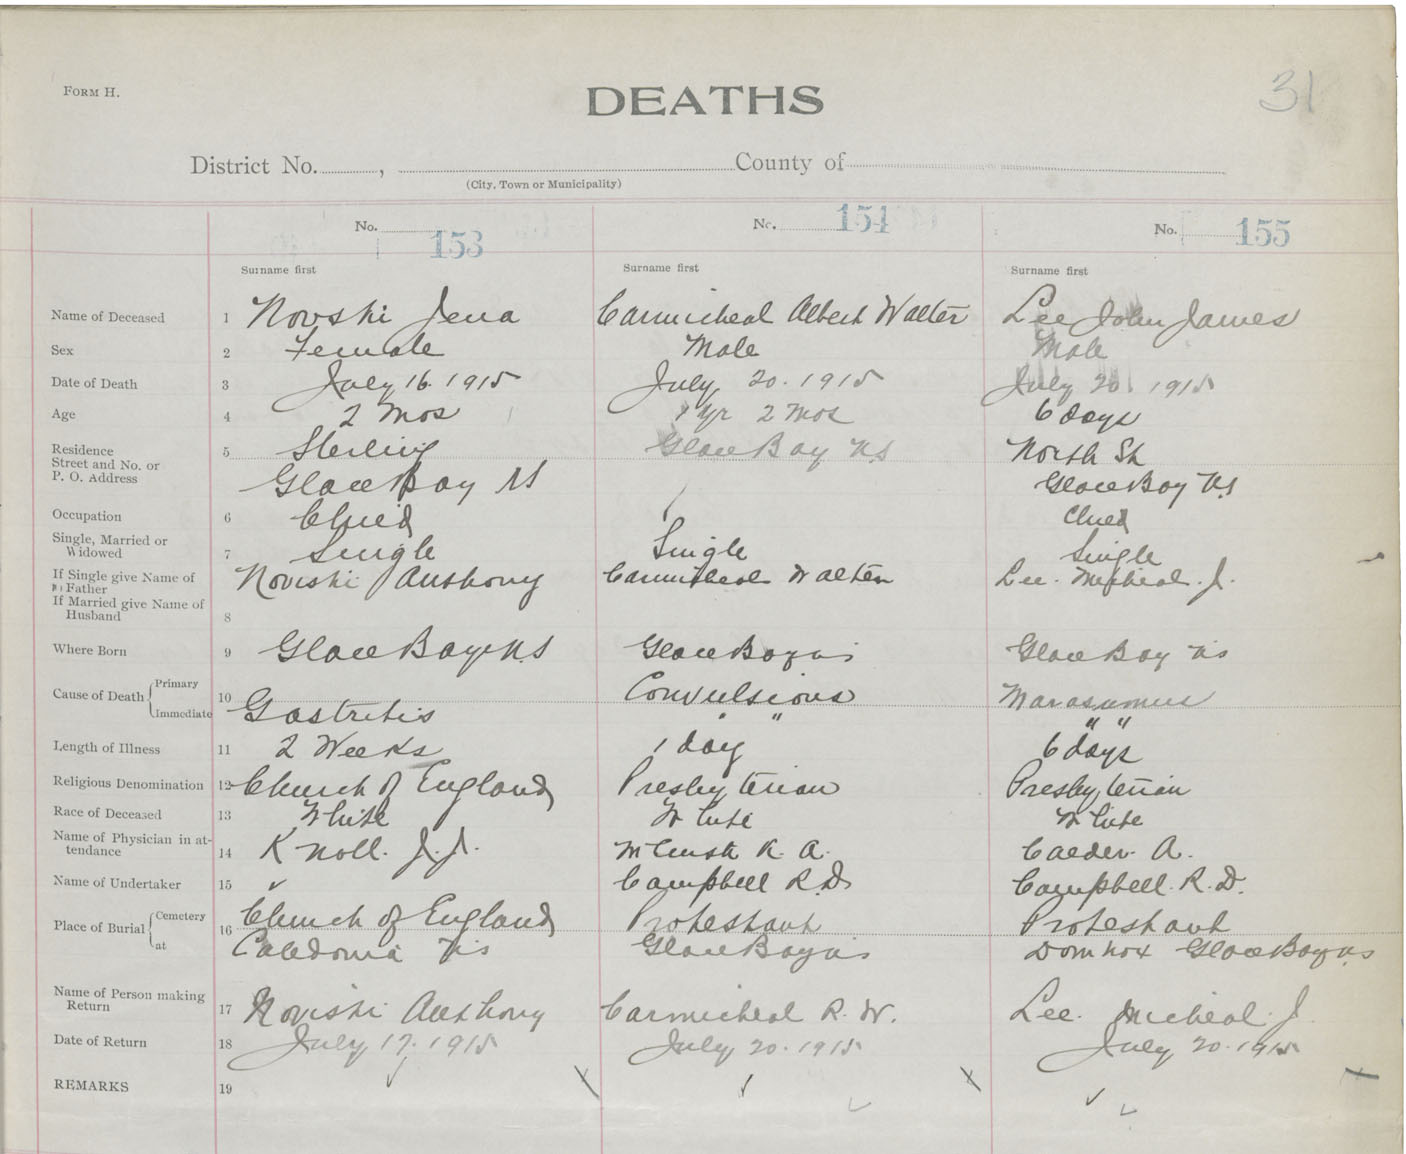 FORM H.
DEATHS
31
District No. , County of
(City, Town or Municipality)
No. 153 No. 154 No. 155
Surname first Surname first Surname first
Name of Deceased 1 Novski Jena Carmicheal Albert Walter Lee John James
Sex 2 Female Male Male
Date of Death 3 July 16. 1915 July 20. 1915 July 20 1915
Age 4 2 Mos 1 Yr 2 Mos 6 days
Residence 5 Sterling Glace Bay NS North St
Street and No. or
P. O. Address Glace Bay NS Glace Bay NS
Occupation 6 Child Child
Single, Married or
Widowed 7 Single Single Single
If Single give Name of
Father Noviski Anthony Carmicheal Walter Lee. Micheal. J.
If Married give Name of
Husband 8
Where Born 9 Glace Bay NS Glace Bay NS Glace Bay NS
Cause of Death Primary 10 Convulsions Marasumus
Immediate Gastritis " " " "
Length of Illness 11 2 Weeks 1 day 6 days
Religious Denomination 12 Church of England Presbyterian Presbyterian
Race of Deceased 13 White White White
Name of Physician in at-
tendance 14 Knoll. J.J. K. A. Calder. A.
Name of Undertaker 15 ✓ Campbell R.D Campbell. R. D.
Place of Burial Cemetery 16 Church of England Protestant Protestant
at Caledonia NS Glace Bay NS Dom No x Glace Bay NS
Name of Person making
Return 17 Noviski Anthony Carmicheal R. W. Lee. Micheal. J
Date of Return 18 July 17. 1915 July 20. 1915 July 20. 1915
REMARKS 19